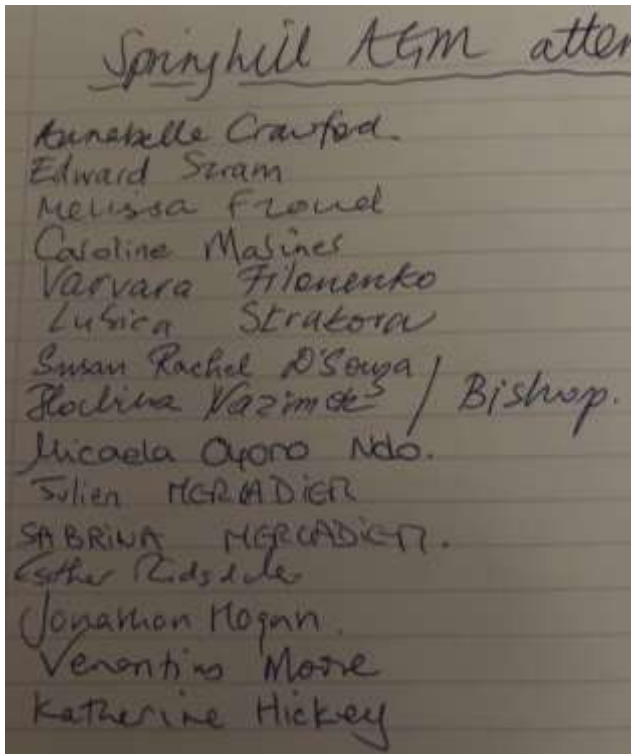 Springhill AGM atten
Annabelle Crawford.
Edward Szram
Melissa Froud
Caroline Masines
Varvara Filonenko
Lubica Strakova
Susan Rachel D'Souza
/ Bishop.
Micaela Oyono Ndo.
Julien MERCADIER
SABRINA MERCADIER.
Esther Ridsdale
Jonathon Hogan.
Moore
Katherine Hickey